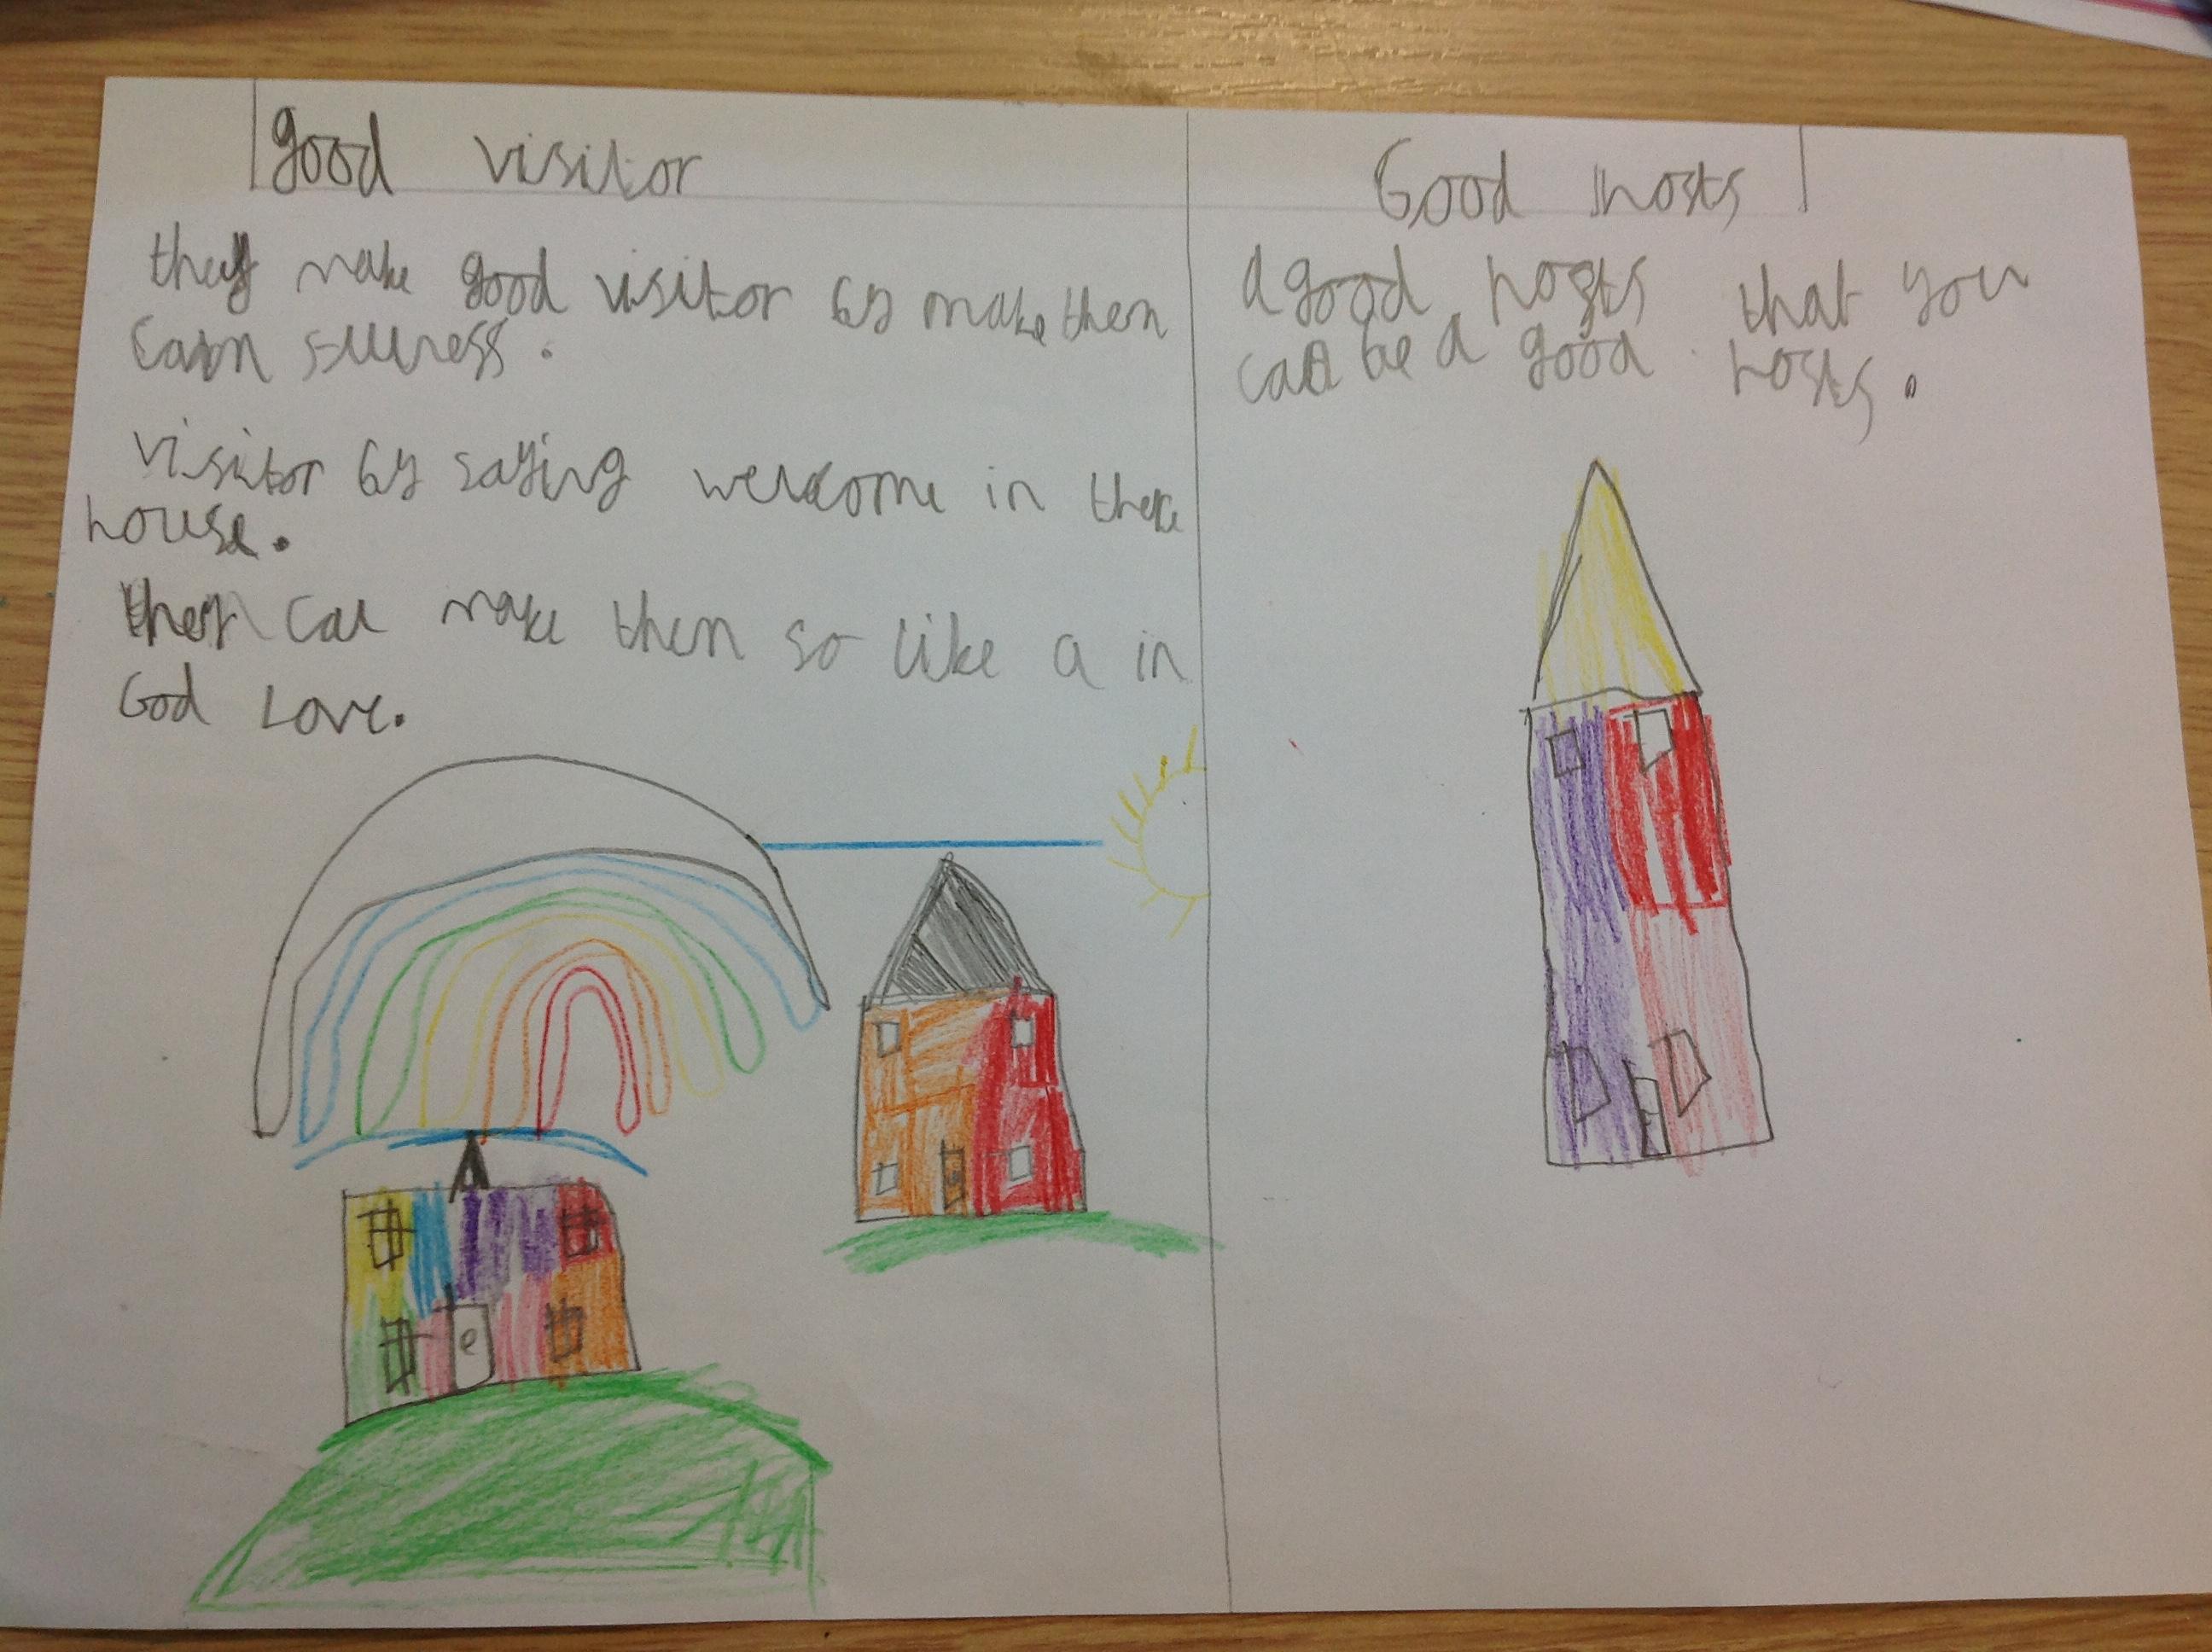 good visitor
they make good visitor by make them
calm stillness.
visitor by saying welcome in there
house.
they can make them so like a in
God Love.
Good hosts
a good hosts that you
can be a good hosts.